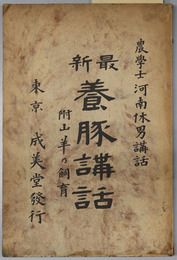 農學士河南休男講話
最新
養豚講話
附山羊の飼育
東京 成美堂發行